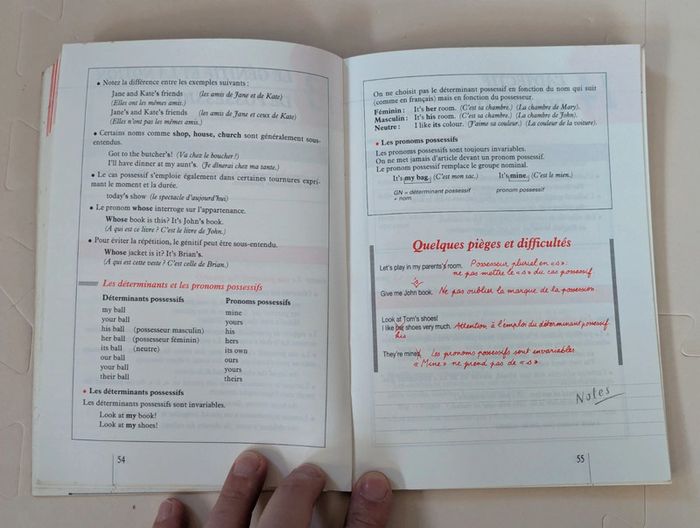 • Notez la différence entre les exemples suivants :
Jane and Kate's friends (les amis de Jane et de Kate)
(Elles ont les mêmes amis.)
Jane's and Kate's friends (les amis de Jane et ceux de Kate)
(Elles n'ont pas les mêmes amis.)
• Certains noms comme shop, house, church sont généralement sous-
entendus.
Got to the butcher's! (Va chez le boucher!)
I'll have dinner at my aunt's. (Je dînerai chez ma tante.)
• Le cas possessif s'emploie également dans certaines tournures expri-
mant le moment et la durée.
today's show (le spectacle d'aujourd'hui)
• Le pronom whose interroge sur l'appartenance.
Whose book is this? It's John's book.
(A qui est ce livre ? C'est le livre de John.)
• Pour éviter la répétition, le génitif peut être sous-entendu.
Whose jacket is it? It's Brian's.
(A qui est cette veste ? C'est celle de Brian.)
Les déterminants et les pronoms possessifs
Déterminants possessifs Pronoms possessifs
my ball mine
your ball yours
his ball (possesseur masculin) his
her ball (possesseur féminin) hers
its ball (neutre) its own
our ball ours
your ball yours
their ball theirs
• Les déterminants possessifs
Les déterminants possessifs sont invariables.
Look at my book!
Look at my shoes!
54
On ne choisit pas le déterminant possessif en fonction du nom qui suit
(comme en français) mais en fonction du possesseur.
Féminin : It's her room. (C'est sa chambre.) (La chambre de Mary).
Masculin : It's his room. (C'est sa chambre.) (La chambre de John).
Neutre : I like its colour. (J'aime sa couleur.) (La couleur de la voiture).
• Les pronoms possessifs
Les pronoms possessifs sont toujours invariables.
On ne met jamais d'article devant un pronom possessif.
Le pronom possessif remplace le groupe nominal.
It's my bag. (C'est mon sac.) It's mine. (C'est le mien.)
GN = déterminant possessif pronom possessif
+ nom
Quelques pièges et difficultés
Let's play in my parents' room. Possesseur pluriel en «s»
ne pas mettre le «s» du cas possessif
's
Give me John book. Ne pas oublier la marque de la possession
Look at Tom's shoes!
I like her shoes very much. Attention à l'emploi du déterminant possessif
his
They're mines. Les pronoms possessifs sont invariables
« Mine » ne prend pas de «s».
Notes
55